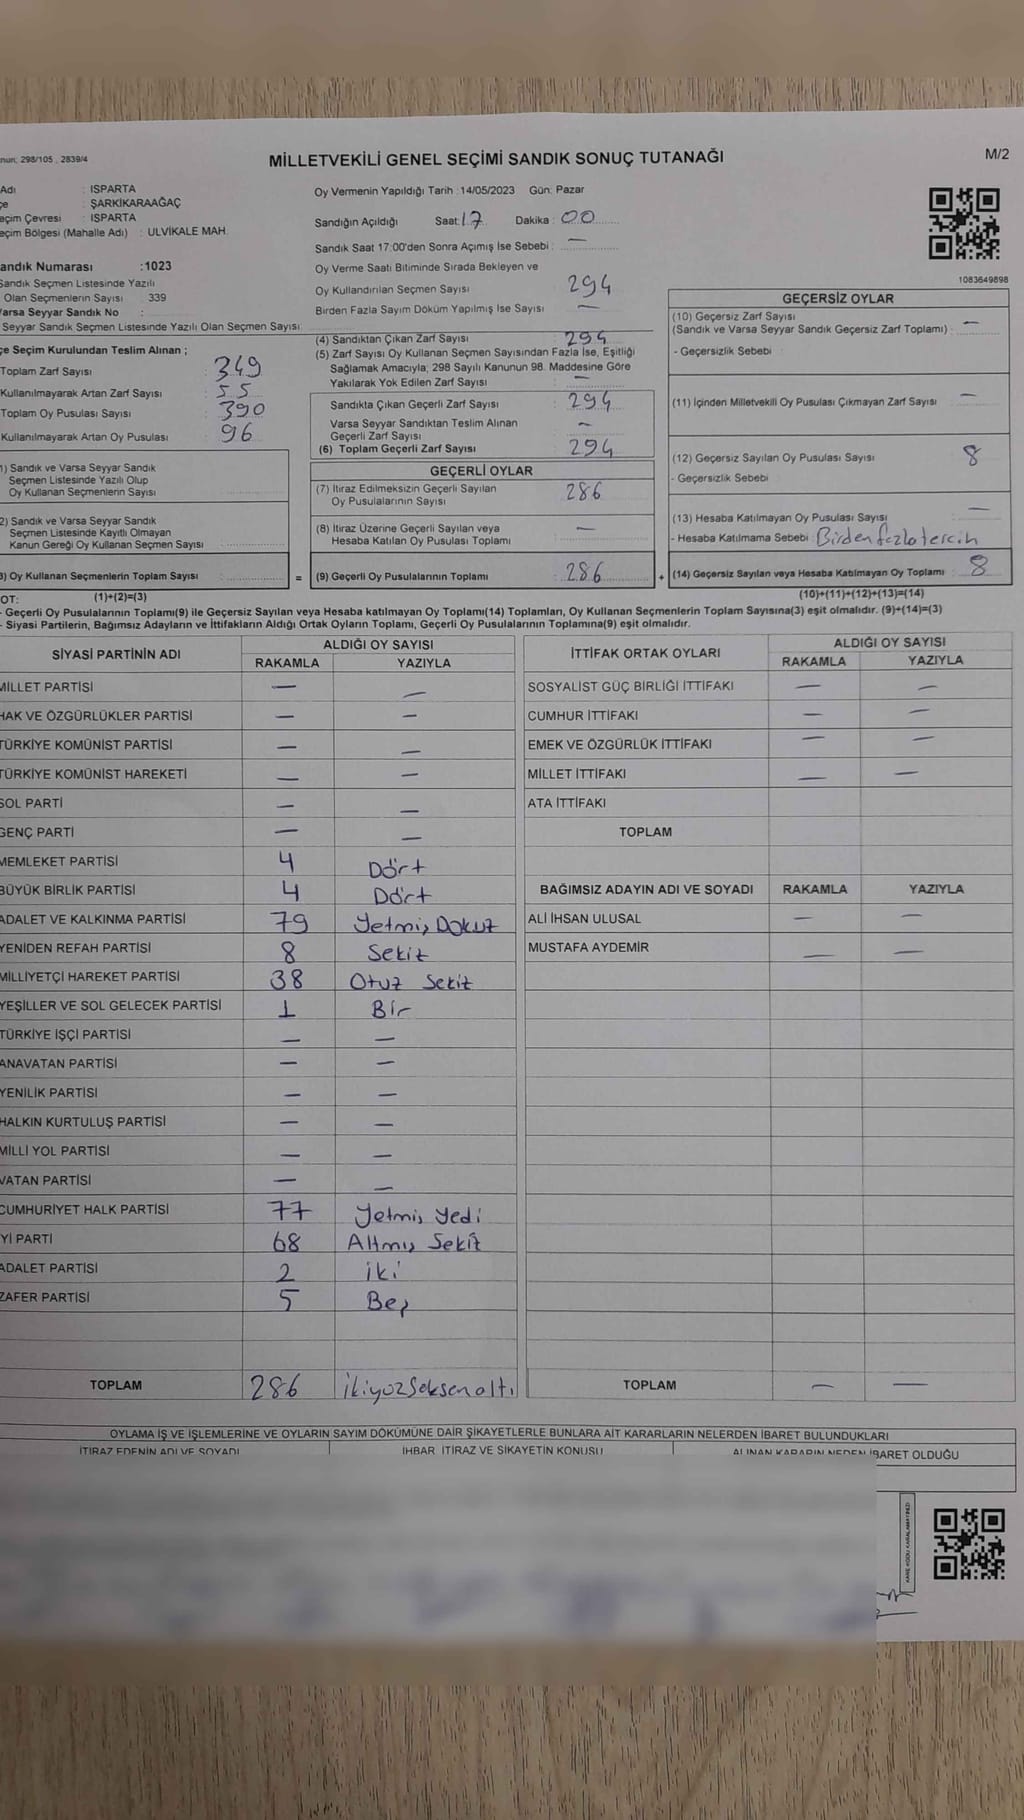 nun; 298/105 , 2839/4
MİLLETVEKİLİ GENEL SEÇİMİ SANDIK SONUÇ TUTANAĞI
M/2
Adı : ISPARTA
çe : ŞARKİKARAAĞAÇ
eçim Çevresi : ISPARTA
eçim Bölgesi (Mahalle Adı) : ULVİKALE MAH.
andık Numarası :1023
Sandık Seçmen Listesinde Yazılı
Olan Seçmenlerin Sayısı : 339
Varsa Seyyar Sandık No :
Seyyar Sandık Seçmen Listesinde Yazılı Olan Seçmen Sayısı:
çe Seçim Kurulundan Teslim Alınan ;
Toplam Zarf Sayısı : 349
Kullanılmayarak Artan Zarf Sayısı : 55
Toplam Oy Pusulası Sayısı : 390
Kullanılmayarak Artan Oy Pusulası : 96
1) Sandık ve Varsa Seyyar Sandık
Seçmen Listesinde Yazılı Olup
Oy Kullanan Seçmenlerin Sayısı :
2) Sandık ve Varsa Seyyar Sandık
Seçmen Listesinde Kayıtlı Olmayan
Kanun Gereği Oy Kullanan Seçmen Sayısı :
3) Oy Kullanan Seçmenlerin Toplam Sayısı : =
Oy Vermenin Yapıldığı Tarih :14/05/2023 Gün: Pazar
Sandığın Açıldığı Saat: 17 Dakika : 00
Sandık Saat 17:00'den Sonra Açımış İse Sebebi : —
Oy Verme Saati Bitiminde Sırada Bekleyen ve
Oy Kullandırılan Seçmen Sayısı 294
Birden Fazla Sayım Döküm Yapılmış İse Sayısı : —
(4) Sandıktan Çıkan Zarf Sayısı : 294
(5) Zarf Sayısı Oy Kullanan Seçmen Sayısından Fazla İse, Eşitliği
Sağlamak Amacıyla; 298 Sayılı Kanunun 98. Maddesine Göre
Yakılarak Yok Edilen Zarf Sayısı : —
Sandıkta Çıkan Geçerli Zarf Sayısı : 294
Varsa Seyyar Sandıktan Teslim Alınan
Geçerli Zarf Sayısı : —
(6) Toplam Geçerli Zarf Sayısı : 294
GEÇERLİ OYLAR
(7) İtiraz Edilmeksizin Geçerli Sayılan
Oy Pusulalarının Sayısı : 286
(8) İtiraz Üzerine Geçerli Sayılan veya
Hesaba Katılan Oy Pusulası Toplamı : —
(9) Geçerli Oy Pusulalarının Toplamı : 286 +
1083649898
GEÇERSİZ OYLAR
(10) Geçersiz Zarf Sayısı
(Sandık ve Varsa Seyyar Sandık Geçersiz Zarf Toplamı) : —
- Geçersizlik Sebebi :
(11) İçinden Milletvekili Oy Pusulası Çıkmayan Zarf Sayısı : —
(12) Geçersiz Sayılan Oy Pusulası Sayısı : 8
- Geçersizlik Sebebi :
(13) Hesaba Katılmayan Oy Pusulası Sayısı : —
- Hesaba Katılmama Sebebi : Birden fazla tercih
(14) Geçersiz Sayılan veya Hesaba Katılmayan Oy Toplamı : 8
OT: (1)+(2)=(3)
(10)+(11)+(12)+(13)=(14)
- Geçerli Oy Pusulalarının Toplamı(9) ile Geçersiz Sayılan veya Hesaba katılmayan Oy Toplamı(14) Toplamları, Oy Kullanan Seçmenlerin Toplam Sayısına(3) eşit olmalıdır. (9)+(14)=(3)
- Siyasi Partilerin, Bağımsız Adayların ve İttifakların Aldığı Ortak Oyların Toplamı, Geçerli Oy Pusulalarının Toplamına(9) eşit olmalıdır.
SİYASİ PARTİNİN ADI
ALDIĞI OY SAYISI
RAKAMLA YAZIYLA
MİLLET PARTİSİ — —
HAK VE ÖZGÜRLÜKLER PARTİSİ — —
TÜRKİYE KOMÜNİST PARTİSİ — —
TÜRKİYE KOMÜNİST HAREKETİ — —
SOL PARTİ — —
GENÇ PARTİ — —
MEMLEKET PARTİSİ 4 Dört
BÜYÜK BİRLİK PARTİSİ 4 Dört
ADALET VE KALKINMA PARTİSİ 79 Yetmiş Dokuz
YENİDEN REFAH PARTİSİ 8 Sekiz
MİLLİYETÇİ HAREKET PARTİSİ 38 Otuz Sekiz
YEŞİLLER VE SOL GELECEK PARTİSİ 1 Bir
TÜRKİYE İŞÇİ PARTİSİ — —
ANAVATAN PARTİSİ — —
YENİLİK PARTİSİ — —
HALKIN KURTULUŞ PARTİSİ — —
MİLLİ YOL PARTİSİ — —
VATAN PARTİSİ — —
CUMHURİYET HALK PARTİSİ 77 Yetmiş Yedi
Yİ PARTİ 68 Altmış Sekiz
ADALET PARTİSİ 2 iki
ZAFER PARTİSİ 5 Beş
TOPLAM 286 ikiyüzSeksenaltı
İTTİFAK ORTAK OYLARI
ALDIĞI OY SAYISI
RAKAMLA YAZIYLA
SOSYALİST GÜÇ BİRLİĞİ İTTİFAKI — —
CUMHUR İTTİFAKI — —
EMEK VE ÖZGÜRLÜK İTTİFAKI — —
MİLLET İTTİFAKI — —
ATA İTTİFAKI
TOPLAM
BAĞIMSIZ ADAYIN ADI VE SOYADI RAKAMLA YAZIYLA
ALİ İHSAN ULUSAL — —
MUSTAFA AYDEMİR — —
TOPLAM — —
OYLAMA İŞ VE İŞLEMLERİNE VE OYLARIN SAYIM DÖKÜMÜNE DAİR ŞİKAYETLERLE BUNLARA AİT KARARLARIN NELERDEN İBARET BULUNDUKLARI
İTİRAZ EDENİN ADI VE SOYADI İHBAR, İTİRAZ VE ŞİKAYETİN KONUSU ALINAN KARARIN NEDEN İBARET OLDUĞU
KARE KODU KARALAMAYINIZ!